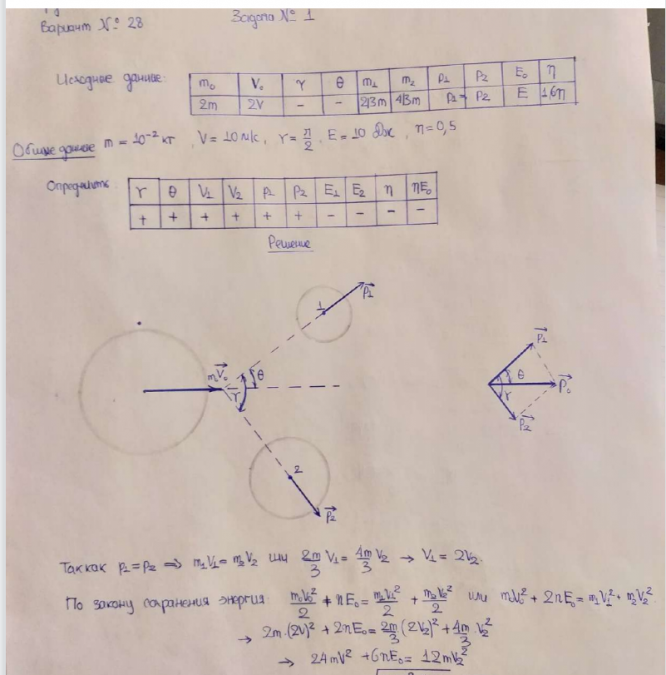 Вариант № 28
Задача № 1
Исходные данные:
m₀ V₀ γ θ m₁ m₂ p₁ p₂ E₀ η
2m 2V – – 2/3m 4/3m p₁= p₂ E 1,6η
Общие данные m = 10⁻² кг , V = 10 м/с , γ = π/2 , E = 10 Дж , η = 0,5
Определить:
γ θ V₁ V₂ p₁ p₂ E₁ E₂ η ηE₀
+ + + + + + – – – –
Решение
1 p₁
m₀V₀ θ
γ
2
p₂
p₁
θ p₀
γ
p₂
Так как p₁ = p₂ ⇒ m₁V₁ = m₂V₂ или 2m/3 V₁ = 4m/3 V₂ → V₁ = 2V₂.
По закону сохранения энергии: m₀V₀²/2 + ηE₀ = m₁V₁²/2 + m₂V₂²/2 или m₀V₀² + 2ηE₀ = m₁V₁² + m₂V₂².
→ 2m·(2V)² + 2ηE₀ = 2m/3 (2V₂)² + 4m/3 V₂²
→ 24mV² + 6ηE₀ = 12mV₂²